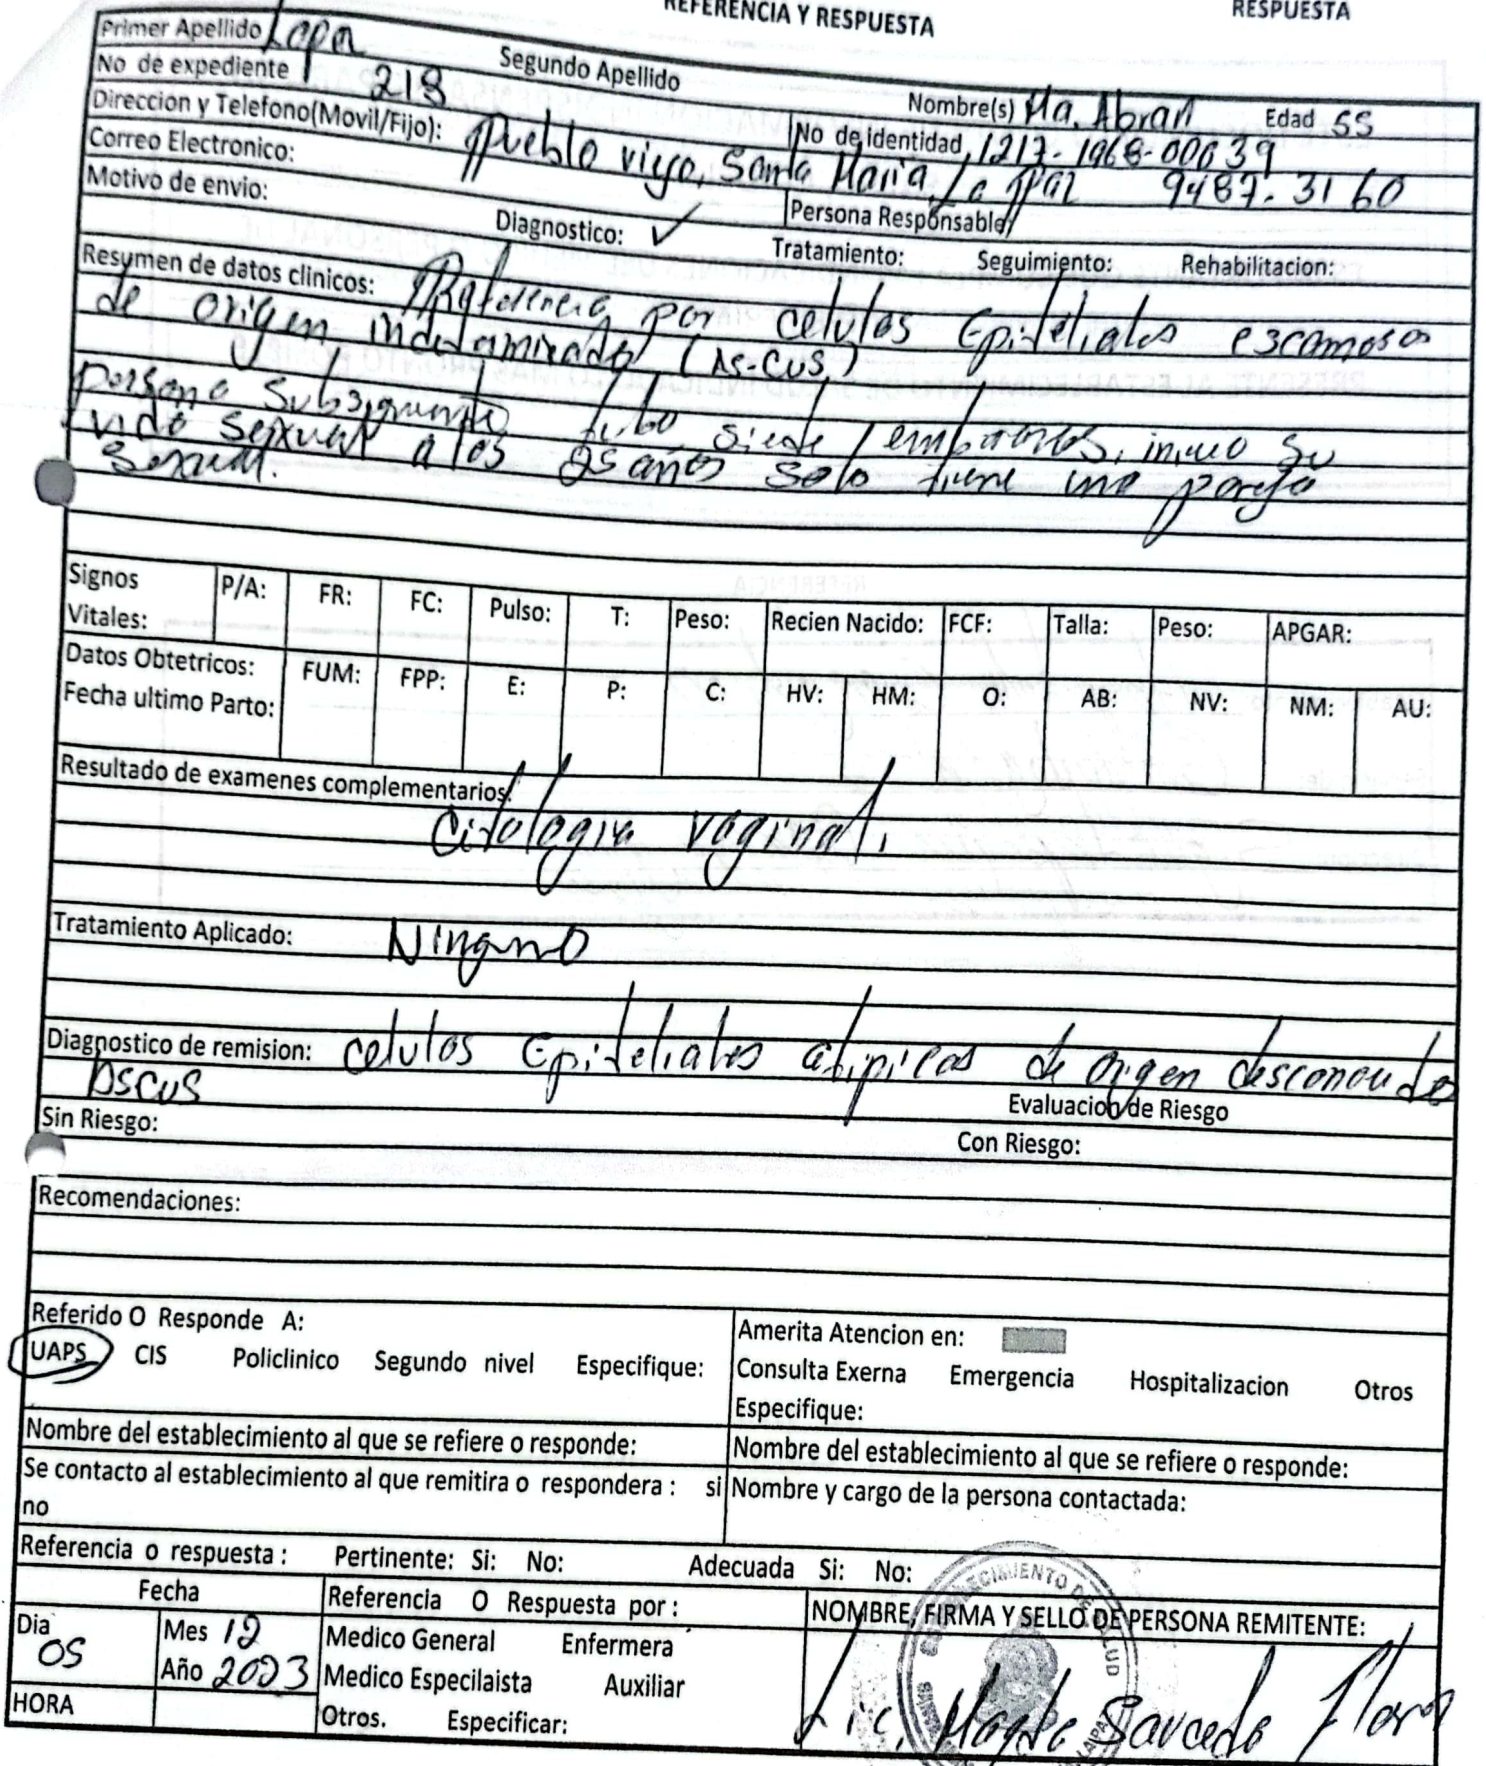 REFERENCIA Y RESPUESTA RESPUESTA
Primer Apellido Lopa Segundo Apellido Nombre(s) Ma. Abran Edad 55
No de expediente 218 No de identidad 1217-1968-00039
Direccion y Telefono(Movil/Fijo): Pueblo viejo, Santa Maria La paz 9487-3160
Correo Electronico: Persona Responsable
Motivo de envio: Diagnostico: ✓ Tratamiento: Seguimiento: Rehabilitacion:
Resumen de datos clinicos: Referencia por celulas Epiteliales escamosas
de origen indetaminado (AS-CUS)
persona Subsiguente tubo siete embarazos, inicio su
vida sexual a los 25 años solo tiene una pareja
sexual.
Signos Vitales: P/A: FR: FC: Pulso: T: Peso: Recien Nacido: FCF: Talla: Peso: APGAR:
Datos Obtetricos: FUM: FPP: E: P: C: HV: HM: O: AB: NV: NM: AU:
Fecha ultimo Parto:
Resultado de examenes complementarios:
Citologia vaginal.
Tratamiento Aplicado: Ninguno
Diagnostico de remision: celulas Epiteliales atipicas de origen desconocido
ASCUS Evaluacion de Riesgo
Sin Riesgo: Con Riesgo:
Recomendaciones:
Referido O Responde A: Amerita Atencion en:
UAPS CIS Policlinico Segundo nivel Especifique: Consulta Exerna Emergencia Hospitalizacion Otros
Especifique:
Nombre del establecimiento al que se refiere o responde: Nombre del establecimiento al que se refiere o responde:
Se contacto al establecimiento al que remitira o respondera : si Nombre y cargo de la persona contactada:
no
Referencia o respuesta : Pertinente: Si: No: Adecuada Si: No:
Fecha Referencia O Respuesta por : NOMBRE, FIRMA Y SELLO DE PERSONA REMITENTE:
Dia 05 Mes 12 Medico General Enfermera
Año 2023 Medico Especilaista Auxiliar
HORA Otros. Especificar: Lic. Magda Saucedo Flores